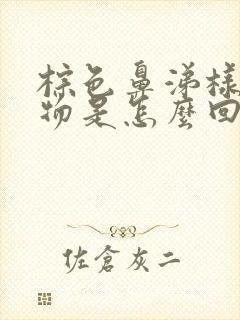 棕色鼻涕樣
物是怎麼回
佐倉灰二